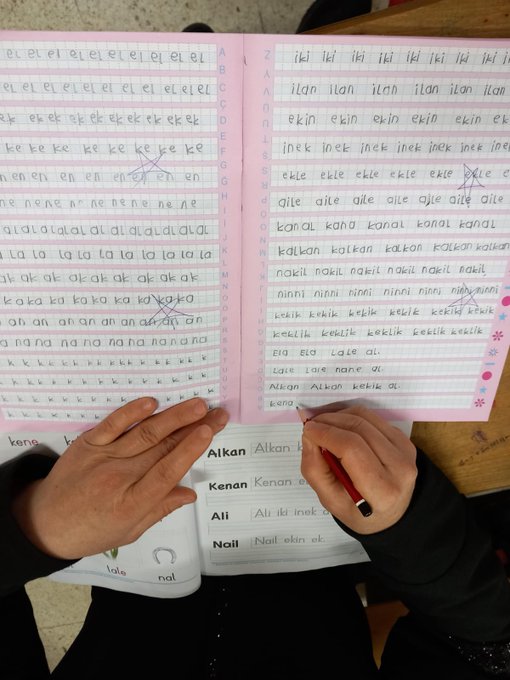 el el el el el el el el el el
el el el el el el el el el el
ek ek ek ek ek ek ek ek ek
ke ke ke ke ke ke ke ke
en en en en en en en en
ne ne ne ne ne ne ne ne ne
al al al al al al al al al al
la la la la la la la la la
ak ak ak ak ak ak ak ak
ka ka ka ka ka ka ka ka
an an an an an an an an an
na na na na na na na na na
k k k k k k k k k k k
k k k k k k k k k k
k k k k k k k k k k
k k k k k k k k k k
k k k k k k k
A
B
C
Ç
D
E
F
G
Ğ
H
I
İ
J
K
L
M
N
O
iki iki iki iki iki iki iki iki
ilan ilan ilan ilan ilan ilan
ekin ekin ekin ekin ekin ek
inek inek inek inek inek inek
ekle ekle ekle ekle ekle ekle e
aile aile aile aile aile aile
kanal kanal kanal kanal kanal
kalkan kalkan kalkan kalkan kalkan
nakil nakil nakil nakil nakil nakil
ninni ninni ninni ninni ninni ninni
kekik kekik kekik kekik kekik kekik kekik
keklik keklik keklik keklik keklik
Ela Ela Lale al.
Lale Lale nane al.
Alkan Alkan kekik al.
kena
kene
lale
nal
Alkan Alkan k
Kenan Kenan e
Ali Ali iki inek
Nail Nail ekin ek.